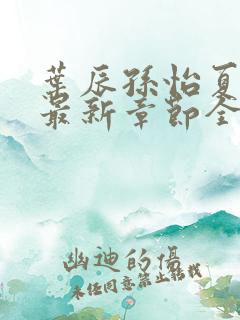 叶辰孙怡夏
最新章节全
幽迪的优
未经同意禁止转载